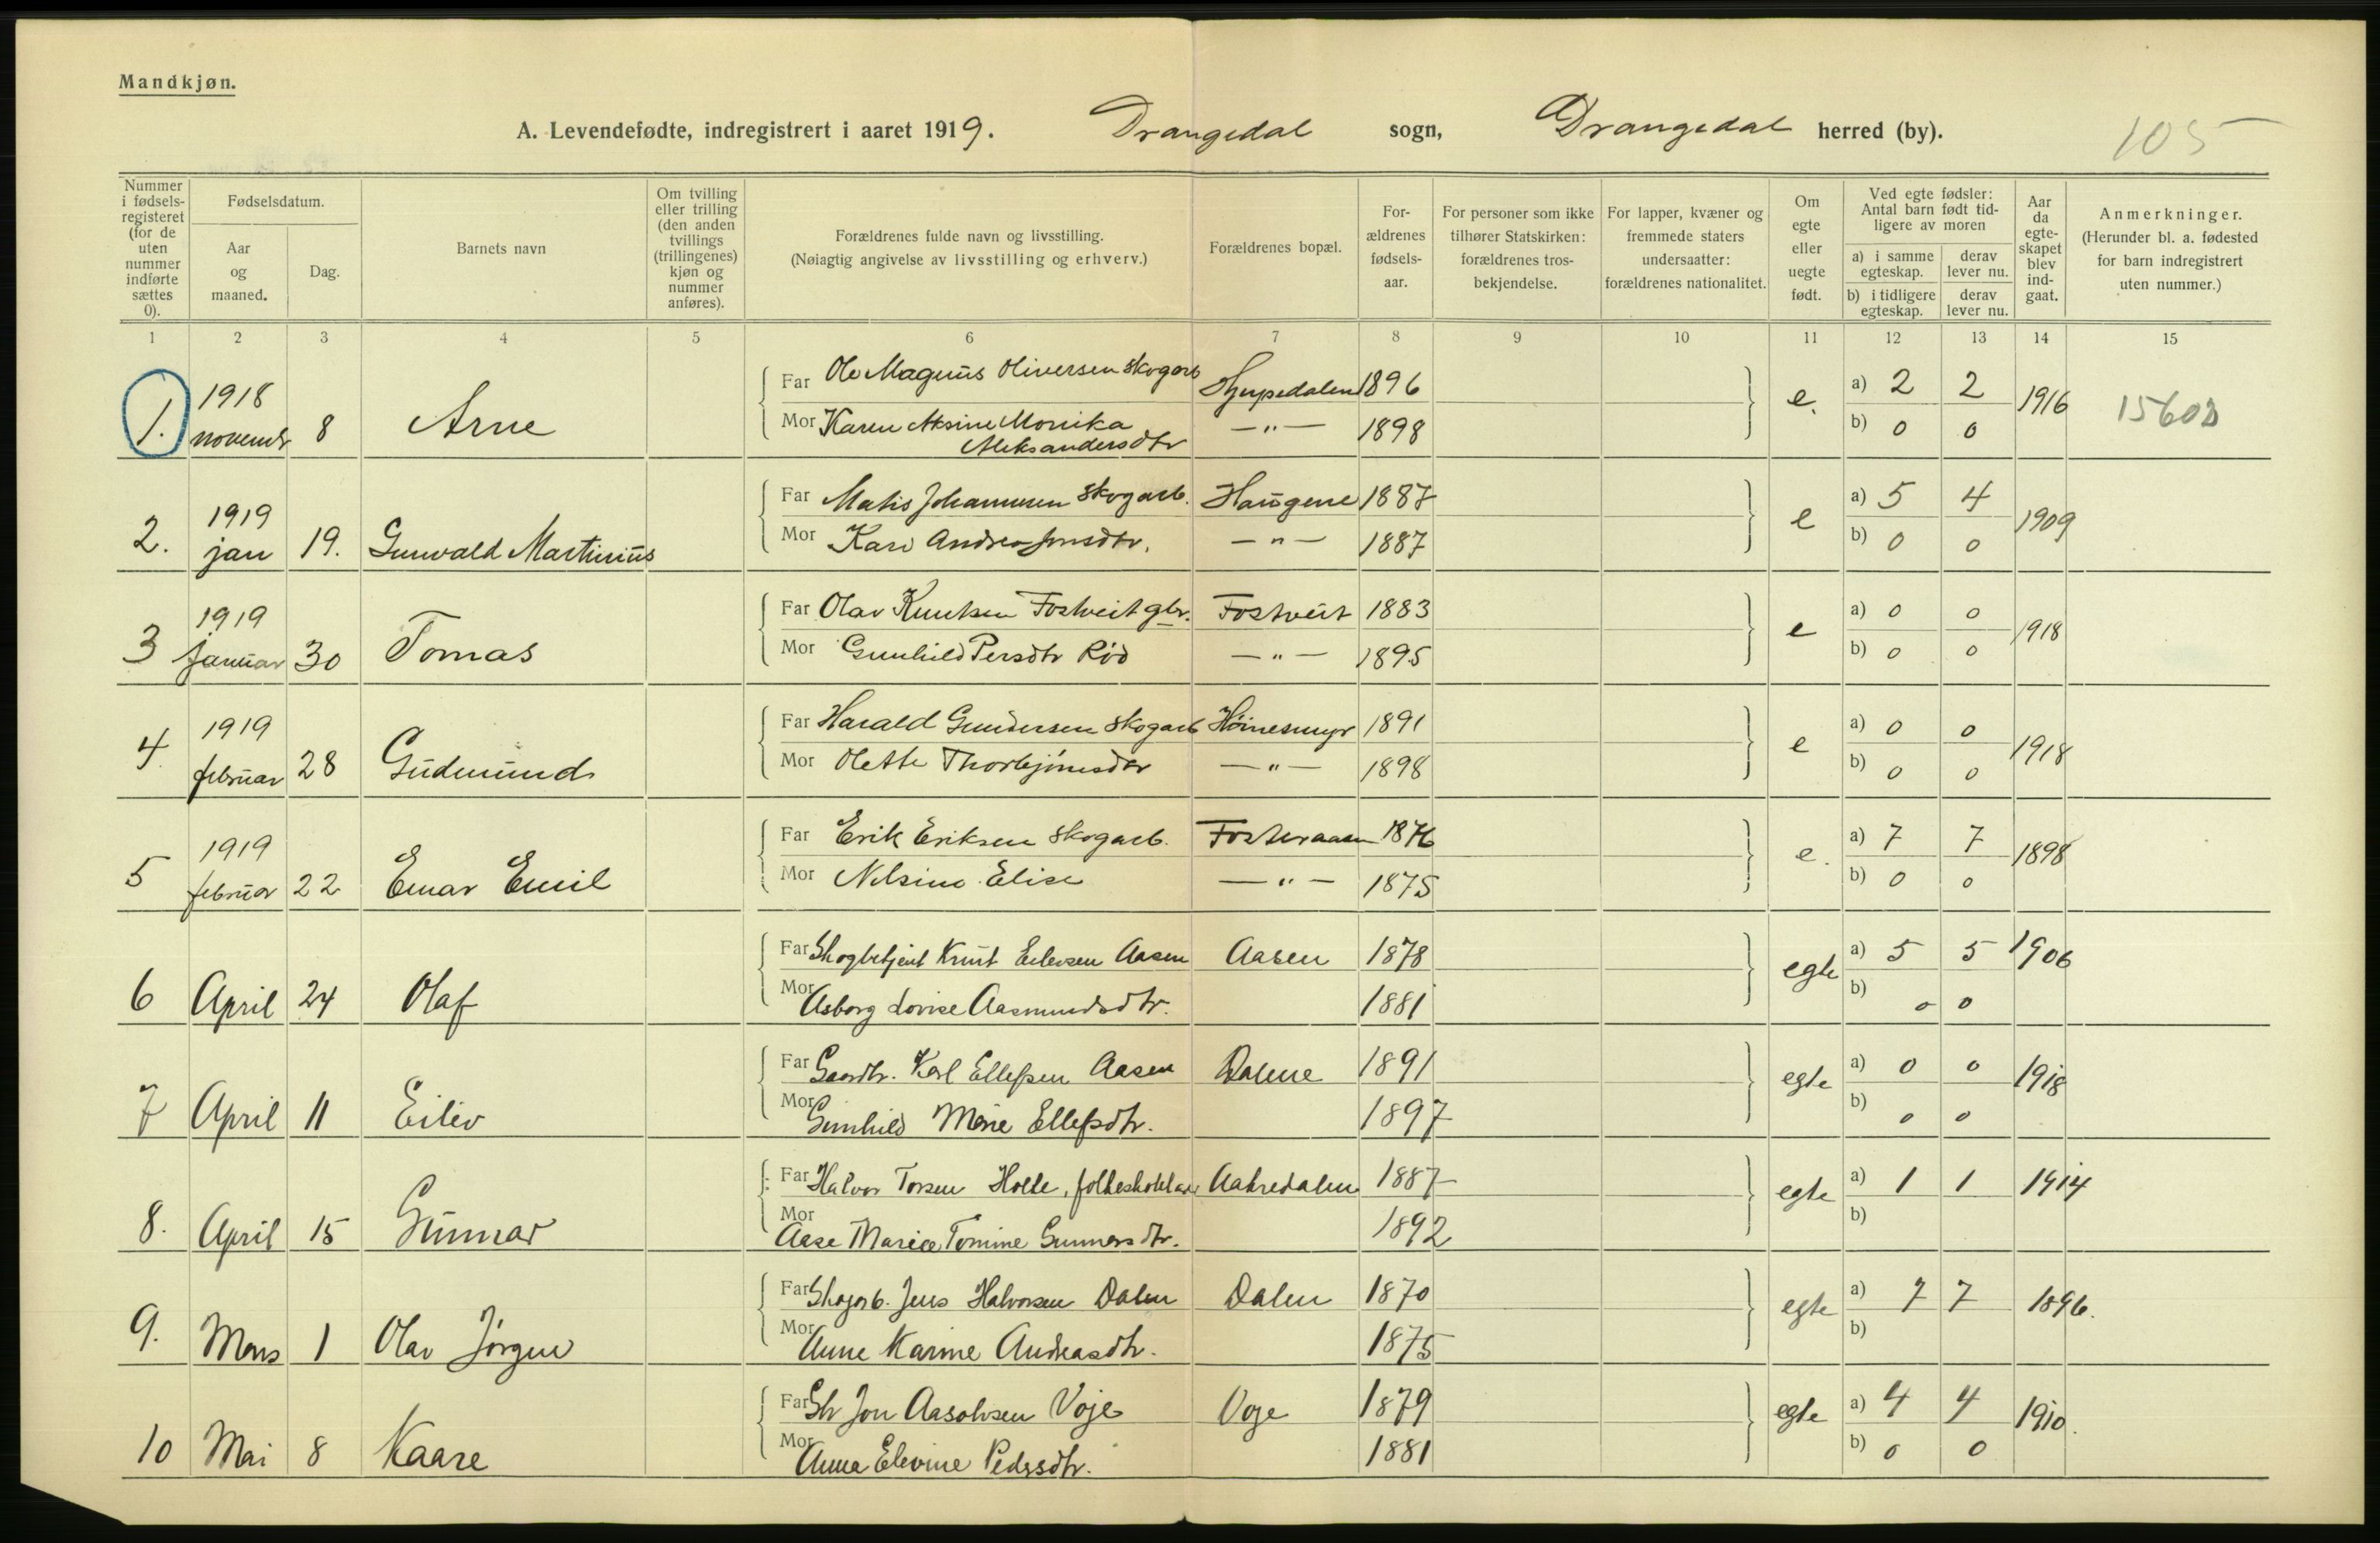 Mandkjøn.
A. Levendefødte, indregistrert i aaret 1919. Drangedal sogn, Drangedal herred (by). 105
Nummer i fødsels-registeret (for de uten nummer indførte sættes 0).
Fødselsdatum.
Aar og maaned.
Dag.
Barnets navn
Om tvilling eller trilling (den anden tvillings (trillingenes) kjøn og nummer anføres).
Forældrenes fulde navn og livsstilling.
(Nøiagtig angivelse av livsstilling og erhverv.)
Forældrenes bopæl.
For-ældrenes fødsels-aar.
For personer som ikke tilhører Statskirken: forældrenes tros-bekjendelse.
For lapper, kvæner og fremmede staters undersaatter: forældrenes nationalitet.
Om egte eller uegte født.
Ved egte fødsler: Antal barn født tid-ligere av moren
a) i samme egteskap. derav lever nu.
b) i tidligere egteskap. derav lever nu.
Aar da egte-skapet blev ind-gaat.
Anmerkninger.
(Herunder bl. a. fødested for barn indregistrert uten nummer.)
1 2 3 4 5 6 7 8 9 10 11 12 13 14 15
1. 1918 novembr 8 Arne
Far Ole Magnus Oliversen Skogarb 1896 e. a) 2 2 1916
Mor Karen Aksine Monika Aleksandersdtr —"— 1898 b) 0 0
2. 1919 jan 19. Gunvald Martinius
Far Matis Johannesen Skogarb. Haugene 1887 e a) 5 4 1909
Mor Kari Andrea Jensdtr. —"— 1887 b) 0 0
3 1919 januar 30 Tomas
Far Olav Knutsen Fostveit gbr. Fostveit 1883 e a) 0 0 1918
Mor Gunhild Persdtr Rød —"— 1895 b) 0 0
4 1919 februar 28 Gudmund
Far Harald Gundersen Skogarb Høinesmyr 1891 e a) 0 0 1918
Mor Olette Thorbjørnsdtr —"— 1898 b) 0 0
5 1919 februar 22 Einar Emil
Far Erik Eriksen Skogarb. 1876 e. a) 7 7 1898
Mor Nilsine Elise —"— 1875 b) 0 0
6 April 24 Olaf
Far Skogbetjent Knut Eilevsen Aasen Aasen 1878 egte a) 5 5 1906
Mor Asborg Lovise Aasmundsdtr. 1881 b) 0 0
7 April 11 Eiliv
Far Gaardbr. Karl Ellefsen Aasen Dalene 1891 egte a) 0 0 1918
Mor Gunhild Marie Ellefsdtr. 1897 b) 0 0
8. April 15 Gunnar
Far Halvor Torsen Holte, Aakredalen 1887 egte a) 1 1 1914
Mor Aase Marie Tomine Gunnarsdtr. 1892 b)
9. Mars 1 Olav Jørgen
Far Skogarb. Jens Halvorsen Dalen Dalen 1870 egte a) 7 7 1896.
Mor Anne Karine Andreasdtr. 1875 b)
10 Mai 8 Kaare
Far Jon Aasolvsen Voje Voje 1879 egte a) 4 4 1910.
Mor Anna Elevine Pedersdtr. 1881 b) 0 0